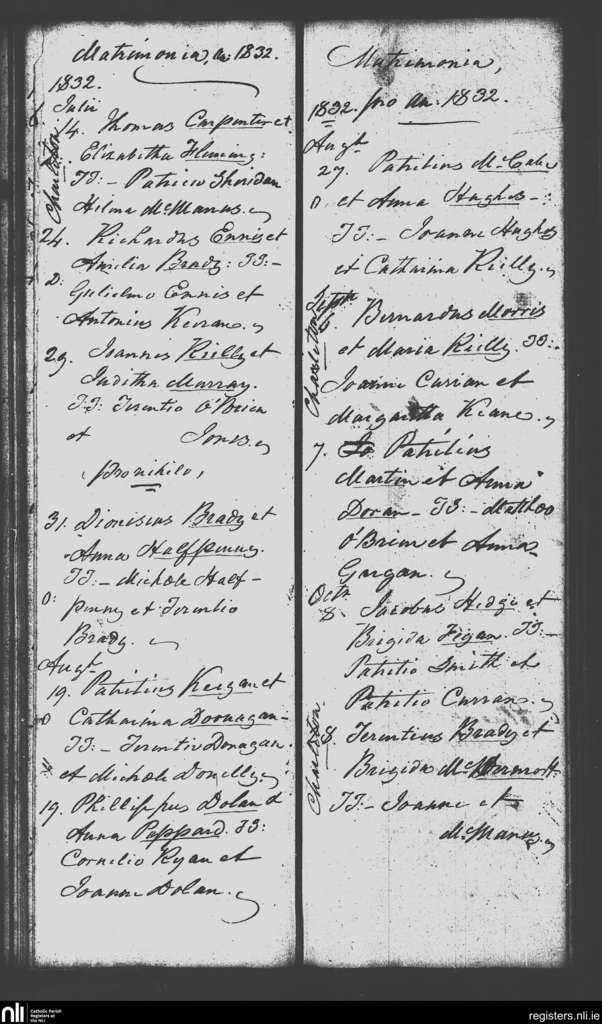 Matrimonia, an: 1832.
1832.
Julii
14. Thomas Carpenter et
Charleston
Elizabetha Fleming:
TT: - Patricio Sheridan
McManus.
24. Richardus Ennis et
Amilia Brady: TT: -
D:
Gulielmo Ennis et
Antonius Keiran.
29. Joannis Rielly et
Juditha Murray.
TT: Terentio O'Brien
et Jones.
31. Dionisius Brady et
Anna Halfpenny.
TT: - Michele Half-
D:
penny et Terentio
Brady.
Augt
19. Patritius Keegan et
Catharina Doonagan -
TT: - Terentio Donagan.
et Michele Donelly
19. Phillippus Dolan &
Anna Peppard. TT:
Cornelio Ryan et
Joanne Dolan.
Matrimonia,
1832. pro an: 1832.
Augt
27. Patritius McCabe
et Anna Hughes -:
TT: - Joanne Hughes
et Catharina Rielly.
Septr
Charleston
Bernardus Morris
et Maria Rielly. TT:
Joanne Curran et
Margaretta Keane.
7. Patritius
Martin et Anna
Doran - TT: - Mattheo
O'Brien et Anna
Gargan.
Octr
8. Jacobus Hidge et
Brigida Figan. TT: -
Patritio Smith et
Patritio Curran.
Charleston
8. Terentius Brady et
Brigida McDermott.
TT: - Joanne et
McManus.
nli
Catholic Parish
Registers at
the NLI
registers.nli.ie